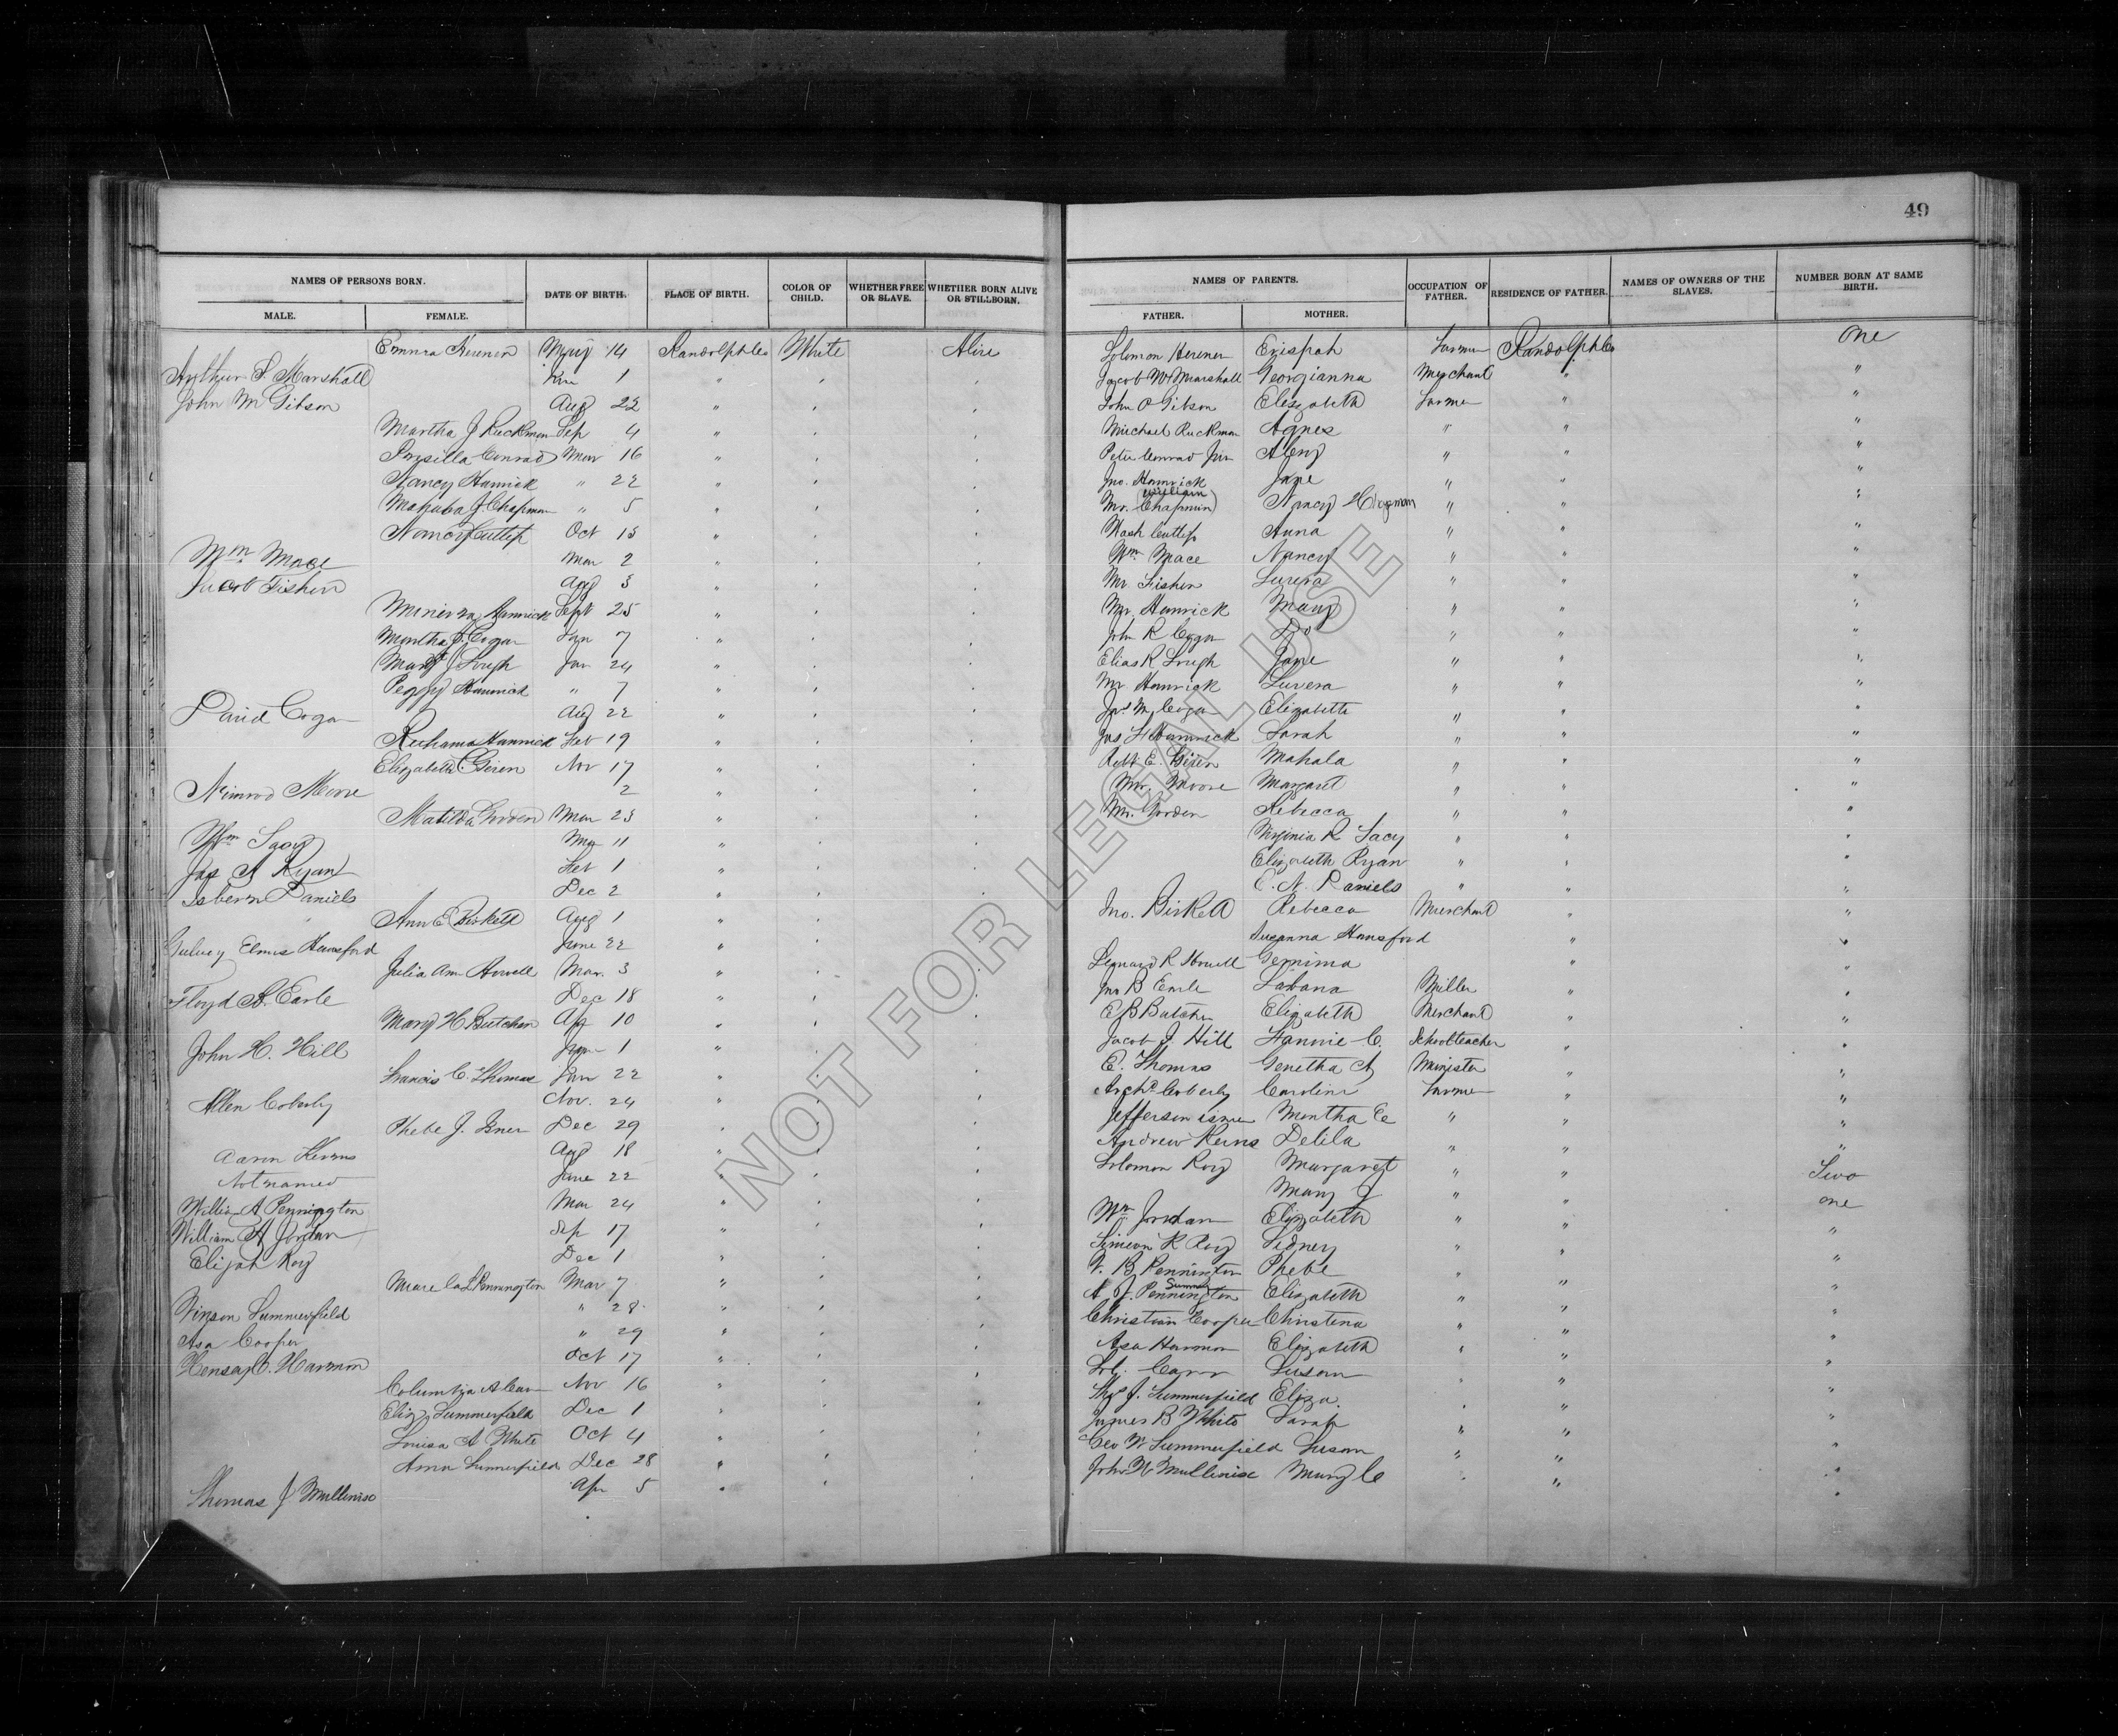 49
NAMES OF PERSONS BORN. DATE OF BIRTH. PLACE OF BIRTH. COLOR OF CHILD. WHETHER FREE OR SLAVE. WHETHER BORN ALIVE OR STILLBORN. NAMES OF PARENTS. OCCUPATION OF FATHER. RESIDENCE OF FATHER. NAMES OF OWNERS OF THE SLAVES. NUMBER BORN AT SAME BIRTH.
MALE. FEMALE. FATHER. MOTHER.
Emma May 14 Randolph Co White Alive Solomon Farmer Randolph Co One
Arthur S. Marshall Jan 1 " " " Jacob W Marshall Georgianna Merchant " "
John M Gibson Aug 22 " " " John O Gibson Elizabeth Farmer " "
Martha J Ruckman Sep 4 " " " Michael Ruckman Agnes " " "
Conrad Mar 16 " " " Peter Conrad " " "
Nancy Hamrick " 22 " " " Jno. Hamrick Jane " " "
J Chapman " 5 " " " Mr. (William Chapman) Nancy Chapman " " "
Nancy Cutlip Oct 15 " " " Cutlip Anna " " "
Wm. Mace Mar 2 " " " Wm Mace Nancy " " "
Jacob Fisher Aug 3 " " " Mr Fisher " " "
Minerva Hamrick Sept 25 " " " Mr. Hamrick Mary " " "
Martha J. Cogar Jan 7 " " " John R Cogar Do " " "
Mary J Lough Jan 24 " " " Elias R Lough Jane " " "
Peggy Hamrick " 7 " " " Mr. Hamrick Luvera " " "
David Cogar Aug 22 " " " Jas M Cogar Elizabeth " " "
Ruhama Hamrick Feb 19 " " " Jas Hamrick Sarah " " "
Elizabeth C Nov 17 " " " Robt E. Mahala " " "
Nimrod Moore 2 " " " Mr. Moore Margaret " " "
Matilda Mar 23 " " " Mr. Rebecca " " "
Wm Lacy 11 " " " Virginia R Lacy " " "
Jas A Ryan Feb 1 " " " Elizabeth Ryan " " "
Daniels Dec 2 " " " E. N. Daniels " " "
Ann E Birkett Aug 1 " " " Jno. Birkett Rebecca Merchant " "
Elmus Hansford June 22 " " " Susanna Hansford " "
Julia Ann Howell Mar. 3 " " " Leonard R Howell Gemima " "
Floyd A. Earle Dec 18 " " " Jno B Earle Miller " "
Mary H Butcher Ap 10 " " " E B Butcher Elizabeth Merchant " "
John H. Hill June 1 " " " Jacob J Hill Fannie C. Schoolteacher " "
Francis C. Thomas Jan 22 " " " E. Thomas Genetha A Minister " "
Allen Coberly Nov. 24 " " " Archd. Coberly Caroline Farmer " "
Phebe J. Isner Dec 29 " " " Jefferson Isner Martha E " " "
Aaron Kerns Aug 18 " " " Andrew Kerns Delila " " "
Not named June 22 " " " Solomon Roy Margaret " " Two
William A Pennington Mar 24 " " " Mary J " " one
William A Jordan Sep 17 " " " Wm Jordan Elizabeth " " "
Elijah Roy Dec 1 " " " Simeon R Roy Sidney " " "
Pennington Mar 7 " " " B Pennington Phebe " " "
Vinson Summerfield " 28 " " " A J. Pennington Elizabeth " " "
Asa Cooper " 29 " " " Christian Cooper Christena " " "
Harmon Oct 17 " " " Asa Harmon Elizabeth " " "
Columbia A Carr Nov 16 " " " Sol. Carr Susan " " "
Eliz Summerfield Dec 1 " " " J. Summerfield Eliza " " "
Louisa A White Oct 4 " " " James B White Sarah " " "
Anna Summerfield Dec 28 " " " Geo W Summerfield Susan " " "
Thomas J Mullenix Apr 5 " " " John W Mullenix Mary C " " "
NOT FOR LEGAL USE